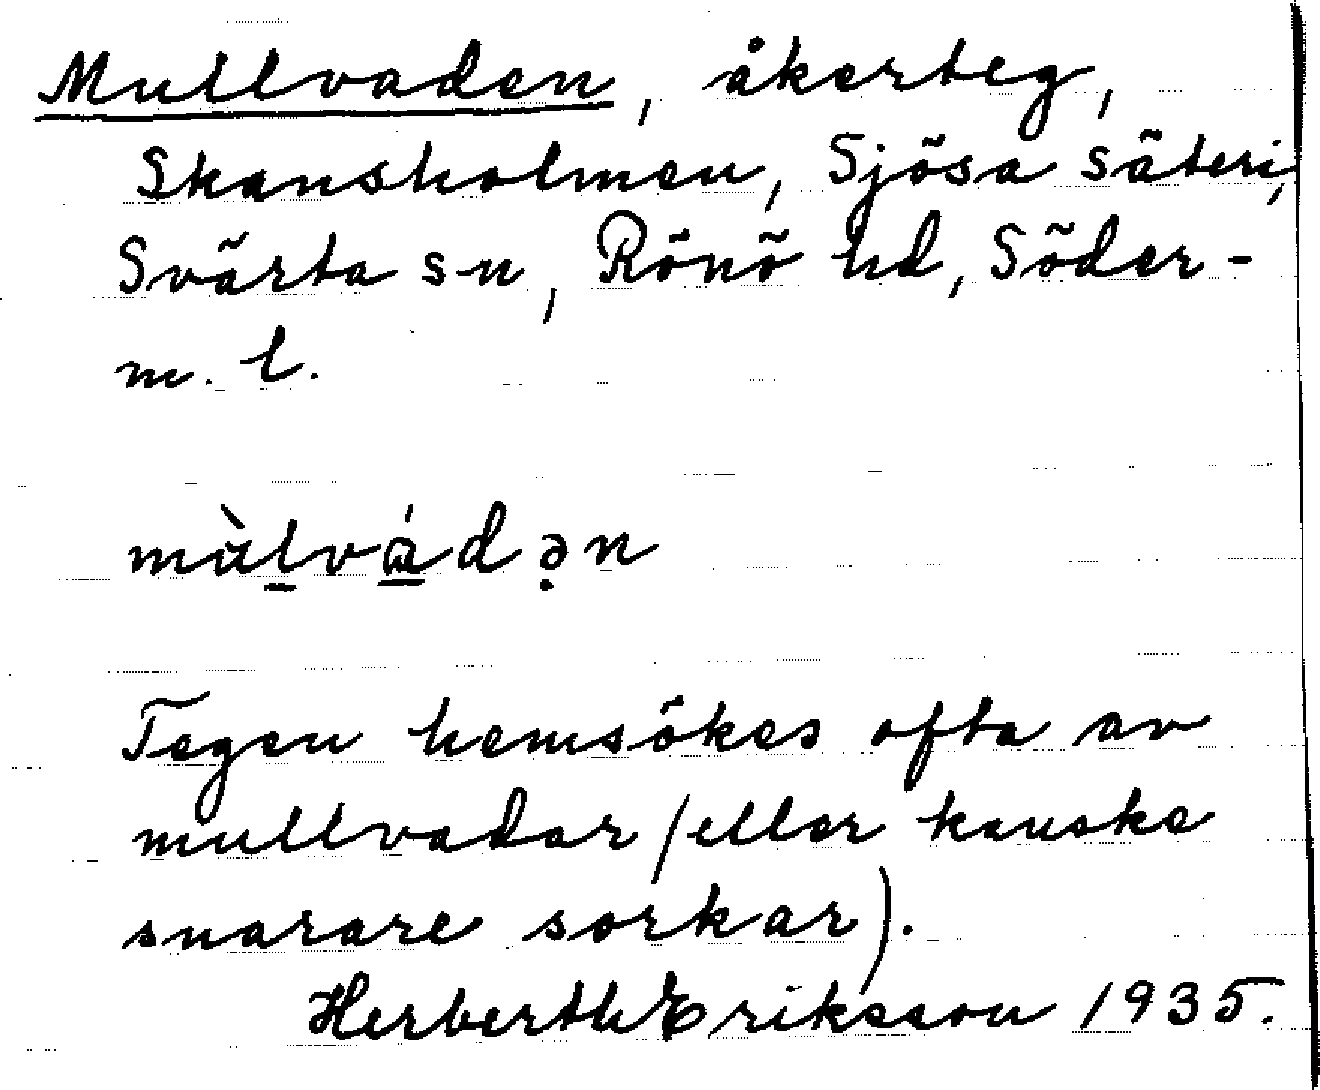 Mullvaden, åkerteg,
Skansholmen, Sjösa säteri,
Svärta sn, Rönö hd, Söder-
m. l.
mùl̠vá̠də̣n
Tegen hemsökes ofta av
mullvadar (eller kanske
snarare sorkar).
Herberth Eriksson 1935.